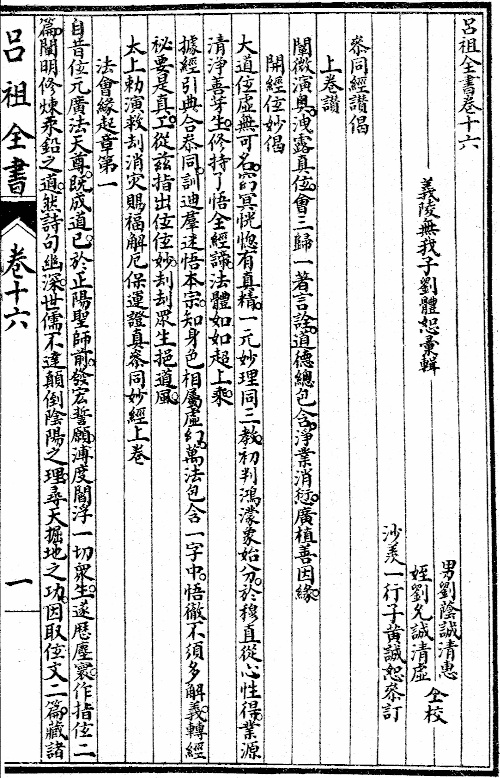 呂祖全書卷十六
義陵無我子劉體恕彙輯
男劉蔭誠清惠
姪劉允誠清虛 仝校
沙羨一行子黃誠恕叅訂
叅同經讃偈
上卷讃
闡微演奥洩露真位會三歸一著言詮道德總包含淨業消愆廣植善因緣
開經位妙偈
大道位虛無可名窈冥恍惚有真精一元妙理同二教初判鴻濛象始分於穆直從心性得業源
清淨善芽生修持了悟全經諦法體如如超上乘
據經引典合叅同訓迪羣迷悟本宗知身色相屬虛幻萬法包含一字中悟徹不須多解義轉經
秘要是真工從兹指出位位妙刦刦眾生挹道風
太上勅演救刦消灾賜福解厄保運證真叅同妙經上卷
法會緣起章第一
自昔位元廣法天尊既成道已於正陽聖師前發宏誓願溥度閻浮一切眾生遂歷塵寰作指位二
篇闡明修煉汞鉛之道然詩句幽深世儒不達顛倒陰陽之理尋天掘地之功因取位文二篇藏諸
呂祖全書 卷十六 一